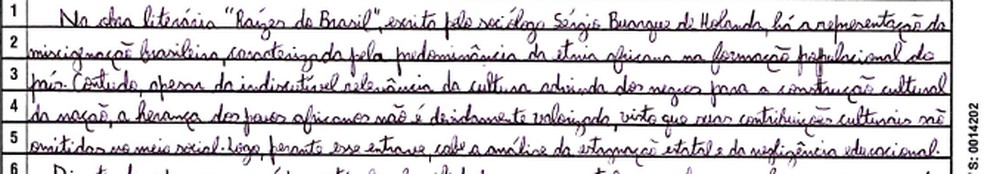 1 Na obra literária "Raízes do Brasil", escrita pelo sociólogo Sérgio Buarque de Holanda, há a representação da
2 miscigenação brasileira, caracterizada pela predominância da etnia africana na formação populacional do
3 país. Contudo, apesar da indiscutível relevância da cultura advinda dos negros para a construção cultural
4 da nação, a herança dos povos africanos não é devidamente valorizada, visto que suas contribuições culturais são
5 omitidas no meio social. Logo, perante esse entrave, cabe a análise da estagnação estatal e da negligência educacional.
6
S: 0014202